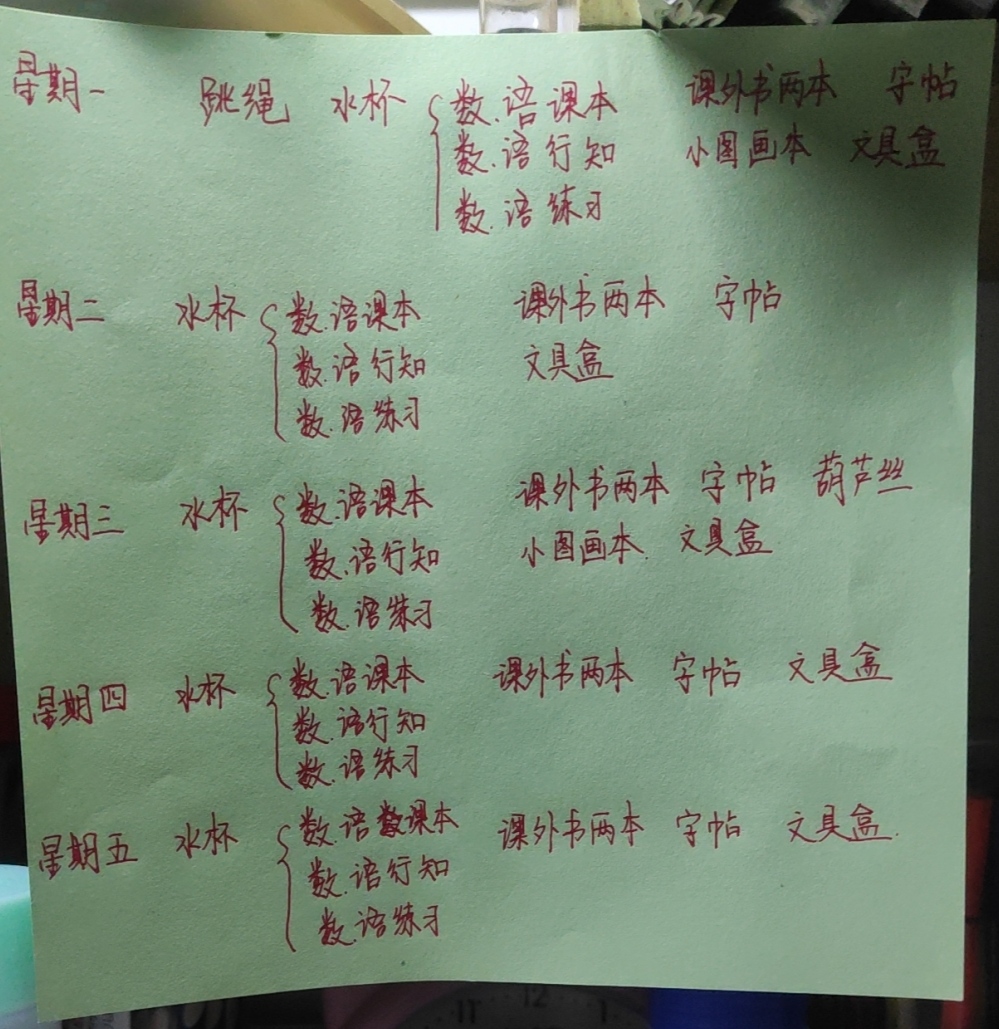 星期一 跳绳 水杯 { 数.语课本 课外书两本 字帖
数.语行知 小图画本 文具盒
数.语练习
星期二 水杯 { 数.语课本 课外书两本 字帖
数.语行知 文具盒
数.语练习
星期三 水杯 { 数.语课本 课外书两本 字帖 葫芦丝
数.语行知 小图画本. 文具盒
数.语练习
星期四 水杯 { 数.语课本 课外书两本 字帖 文具盒
数.语行知
数.语练习
星期五 水杯 { 数.语数课本 课外书两本 字帖 文具盒.
数.语行知
数.语练习
11 12 1